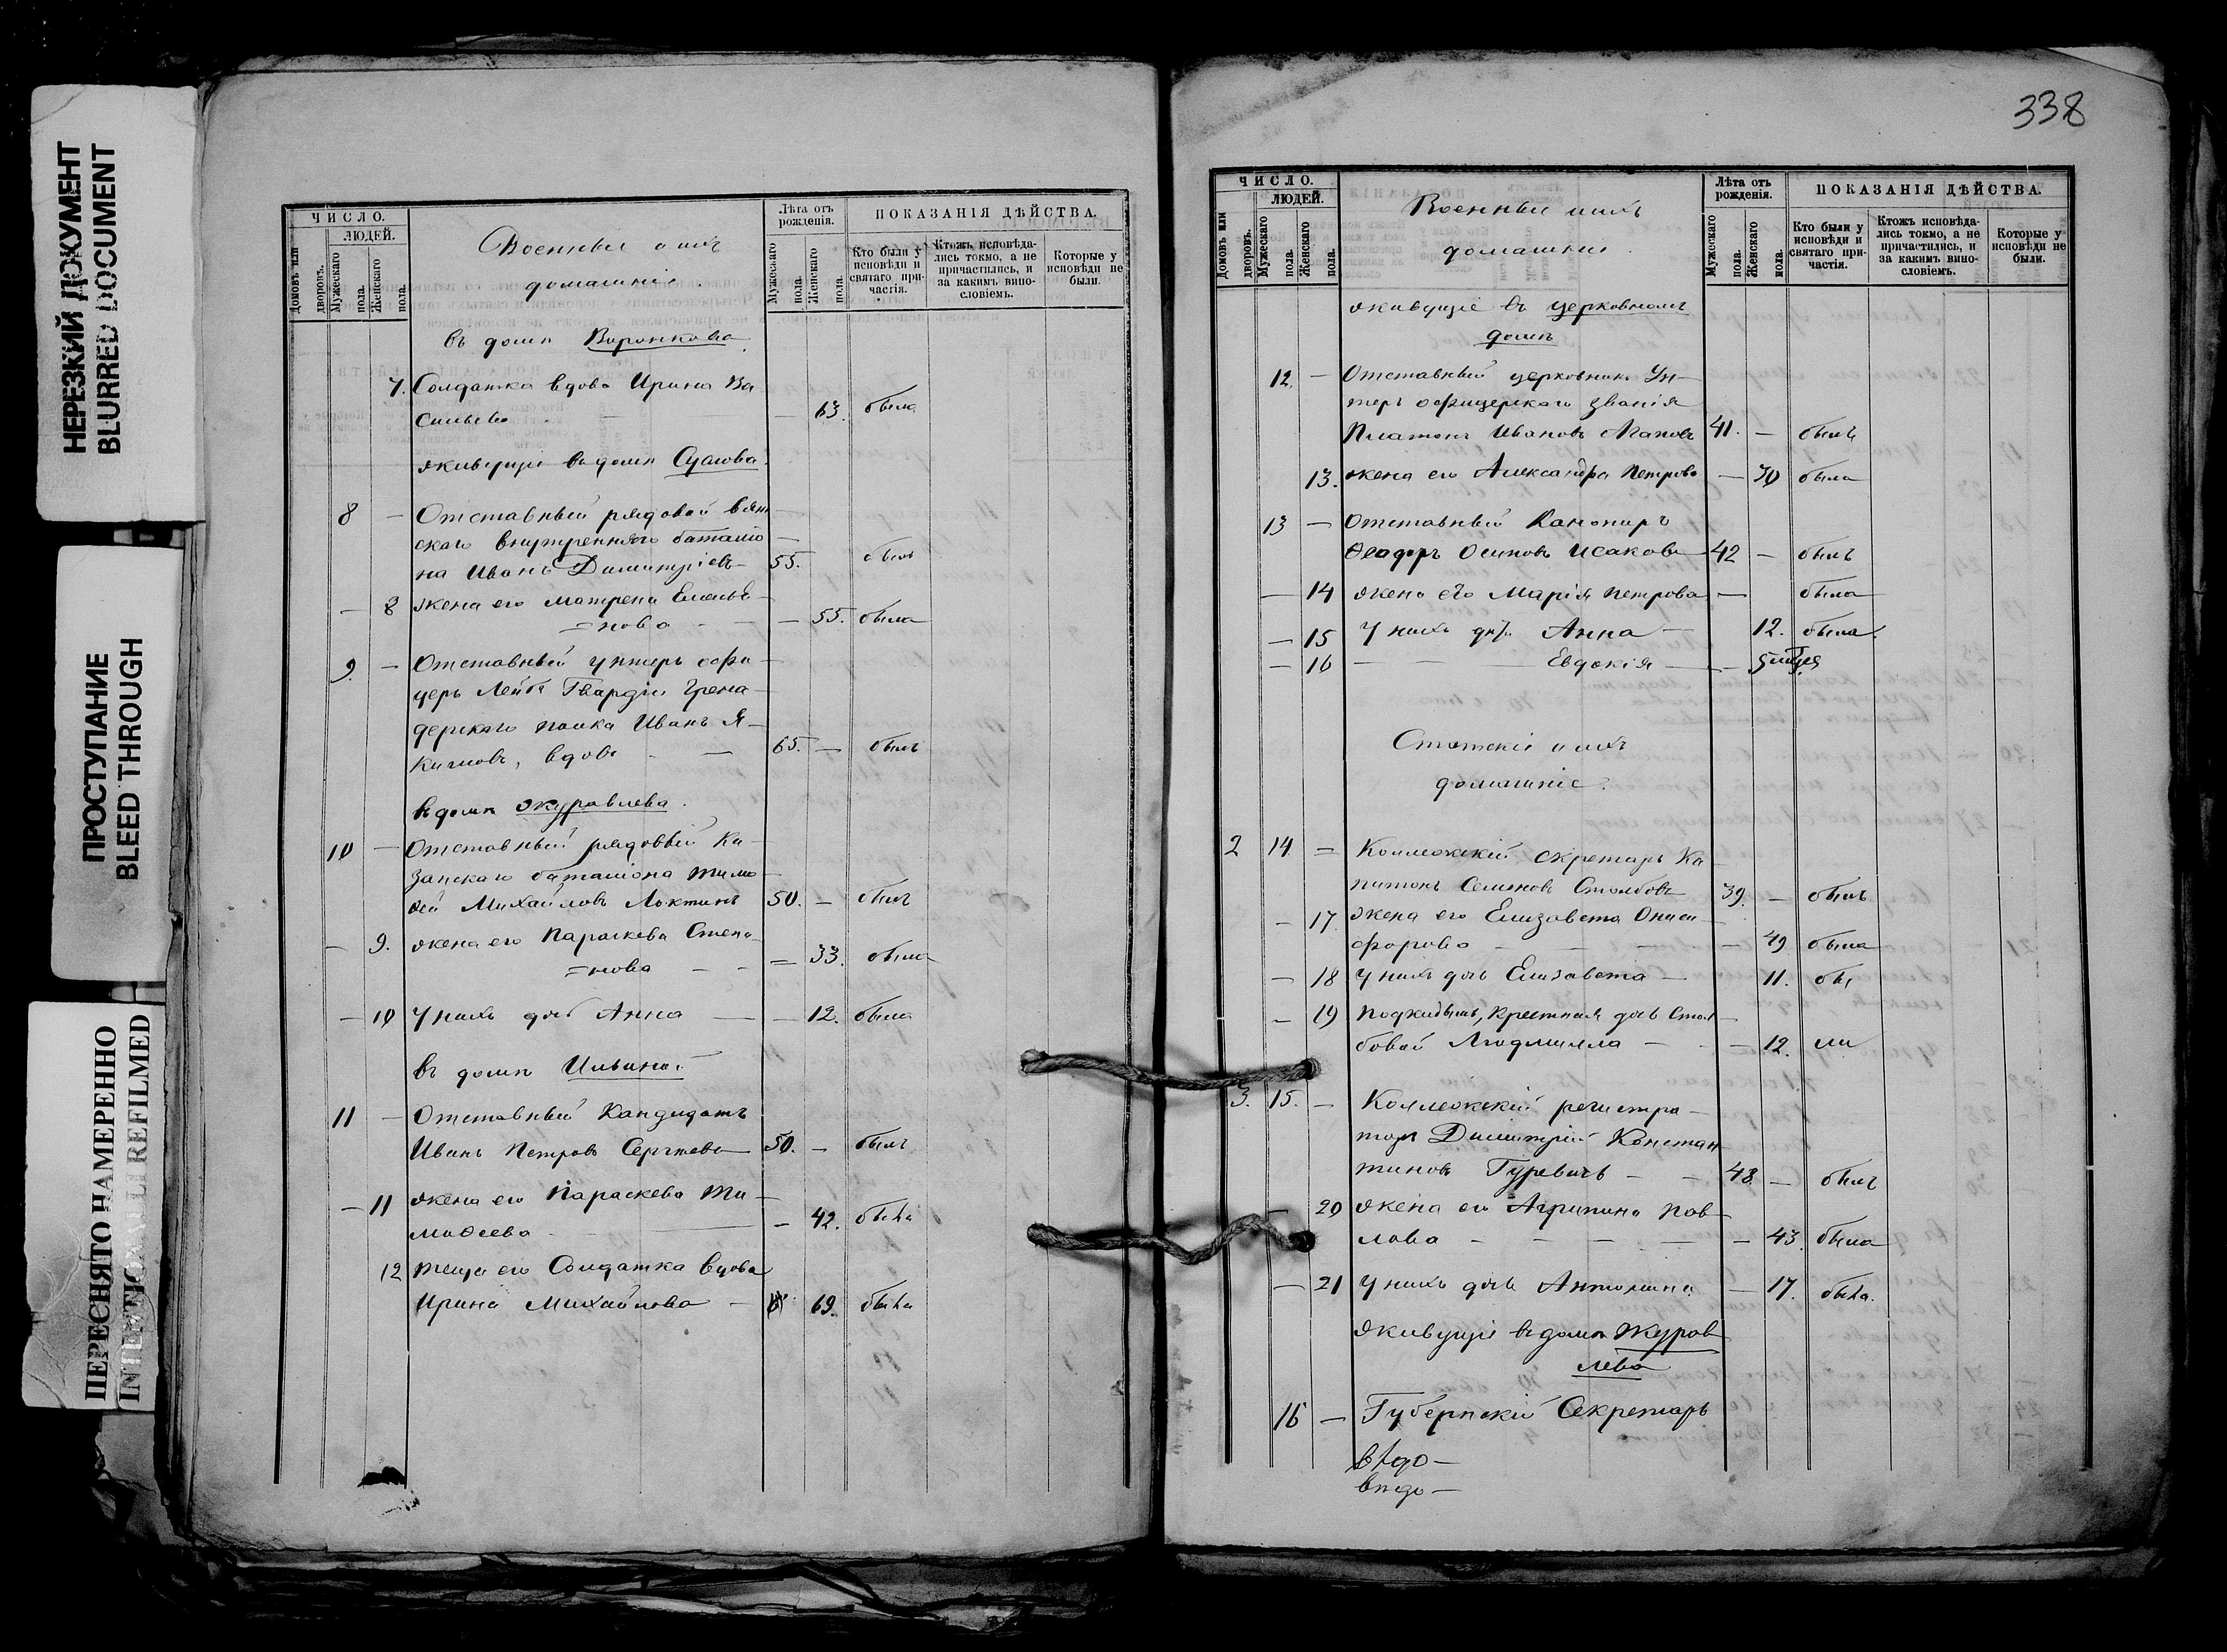 НЕРЕЗКИЙ ДОКУМЕНТ
BLURRED DOCUMENT
ПРОСТУПАНИЕ
BLEED THROUGH
ПЕРЕСНЯТО НАМЕРЕННО
INTENTIONALLY REFILMED
ЧИСЛО.
ЛЮДЕЙ.
Домовъ или дворовъ.
Мужескаго пола.
Женскаго пола.
Военные и ихъ
домашніе.
Лѣта отъ рожденія.
Мужескаго пола.
Женскаго пола.
ПОКАЗАНІЯ ДѢЙСТВА.
Кто были у исповѣди и святаго причастія.
Ктожъ исповѣдались токмо, а не причастились, и за какимъ винословіемъ.
Которые у исповѣди не были.
въ домѣ Воронкова
7. Солдатка вдова Ирина Ва
сильева — 63. была
живущіе въ домѣ
8 — Отставный рядовой
скаго внутренняго баталіо
на Иванъ Димитріевъ — 55. былъ
— 8 жена его Матрена Емелья
=нова — 55. была
9. — Отставный унтеръ офи
церъ Лейбъ Гвардіи Грена
дерскаго полка Иванъ Я
кимовъ, вдовъ — 65. — былъ
въ домѣ Журавлева.
10 — Отставный рядовый Ка
занскаго баталіона Тимо
ѳей Михайловъ Локтинъ 50. — былъ
— 9. жена его Параскева Степа
=нова — — = 33. была
— 10 У нихъ дочь Анна — — 12. была
въ домѣ Ильиной
11 — Отставный Кандидатъ
Иванъ Петровъ Сергѣевъ 50. — былъ
— 11 жена его Параскева Ти
моѳеева — — 42. была
12 теща его Солдатка вдова
Ирина Михайлова — 69. была
338
ЧИСЛО.
ЛЮДЕЙ.
Домовъ или дворовъ.
Мужескаго пола.
Женскаго пола.
Военные и ихъ
домашніе.
Лѣта отъ рожденія.
Мужескаго пола.
Женскаго пола.
ПОКАЗАНІЯ ДѢЙСТВА.
Кто были у исповѣди и святаго причастія.
Ктожъ исповѣдались токмо, а не причастились, и за какимъ винословіемъ.
Которые у исповѣди не были.
живущіе въ церковномъ
домѣ
12. — Отставный церковникъ Ун
теръ офицерскаго званія
Платонъ Ивановъ Агаповъ 41. — былъ
13. жена его Александра Петрова — 30 была
13 — Отставный Канониръ
Ѳеодоръ Осиповъ Исаковъ 42 — былъ
— 14 жена его Марія Петрова — была
— 15 У нихъ дѣти Анна — 12. была
— 16 — — Евдокія —
Статскіе и ихъ
домашніе.
2 14. = Коллежскій секретарь Ка
питонъ Семеновъ Столбовъ 39. — былъ
— 17. жена его Елизавета Ониси
форова — — 49 была
— 18 У нихъ дочь Елизавета — 11. бы
— 19 Подкидышъ, крестная дочь Стол
бовой Людмилла — — 12. ли
3. 15. — Коллежскій регистра
торъ Димитрій Констан
тиновъ Гуревичъ — — 48. — былъ
— 20 жена его Агрипина Пав
лова — — — — 43. была
— 21 У нихъ дочь Антонина — 17. была.
живущіе въ домѣ Журав
лева
16 — Губернскій Секретарь